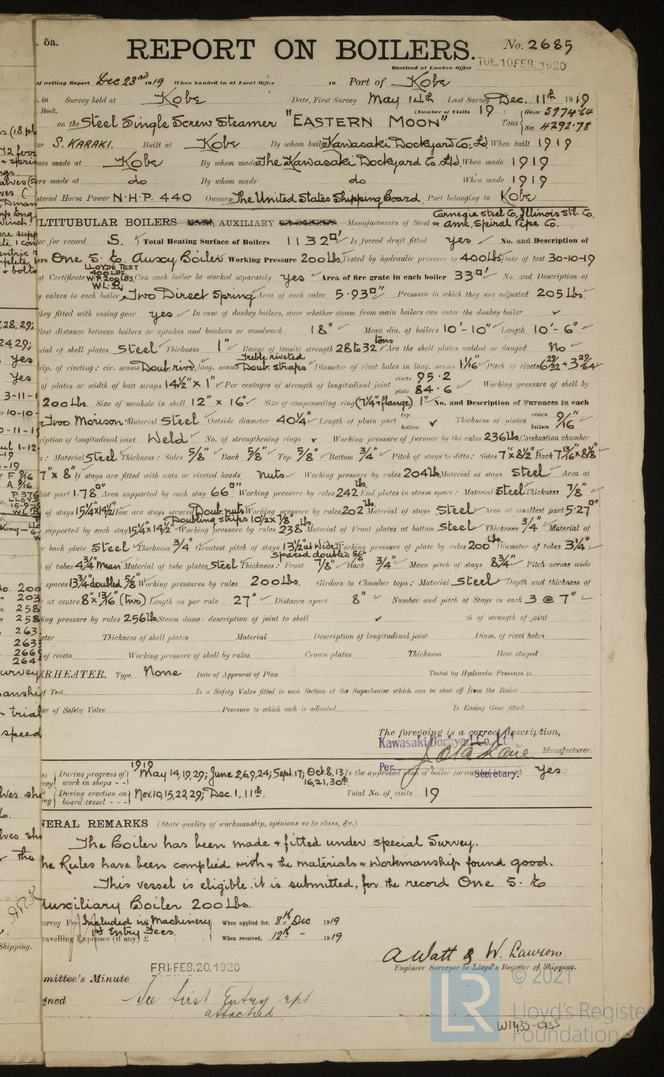 5a.
REPORT ON BOILERS.
No. 2685
Received at London Office TUE.10 FEB.1920
of writing Report Dec 23rd 1919 When handed in at Local Office 10 Port of Kobe
in Survey held at Kobe Date, First Survey May 14th Last Survey Dec. 11th 1919
Book. (Number of Visits 19) Gross 5974.64
on the Steel Single Screw Steamer "EASTERN MOON" Tons Net 4292.78
S. KARAKI. Built at Kobe By whom built Kawasaki Dockyard Co. Ld When built 1919
made at Kobe By whom made The Kawasaki Dockyard Co. Ld When made 1919
made at do By whom made do When made 1919
Horse Power N.H.P. 440 Owners The United States Shipping Board Port belonging to Kobe
LTITUBULAR BOILERS AUXILIARY Manufacturers of Steel Carnegie Steel Co, Illinois Stl. Co. & Amc. Spiral Pipe Co.
for record S. Total Heating Surface of Boilers 1132□' Is forced draft fitted yes No. and Description of
ers One S. E. Auxy Boiler Working Pressure 200 Lbs. Tested by hydraulic pressure to 400 Lbs. Date of test 30-10-19
of Certificate LLOYDS TEST 400 LBS W.P. 200 LBS W.L. Can each boiler be worked separately yes Area of fire grate in each boiler 33□' No. and Description of
valves to each boiler Two Direct Spring Area of each valve 5.93□" Pressure to which they are adjusted 205 Lbs.
they fitted with easing gear yes In case of donkey boilers, state whether steam from main boilers can enter the donkey boiler ✓
llest distance between boilers or uptakes and bunkers or woodwork 18" Mean dia. of boilers 10'-10" Length 10'-6"
rial of shell plates Steel Thickness 1" Range of tensile strength 28 to 32 tons Are the shell plates welded or flanged No
rip. of riveting: cir. seams Doub. rivd. long. seams Trebly riveted Doub Straps Diameter of rivet holes in long. seams 1 1/16" Pitch of rivets 6 29/32 + 3 29/64
of plates or width of butt straps 14 1/2" x 1" Per centages of strength of longitudinal joint rivets 95.2 plate 84.6 Working pressure of shell by
200 Lbs. Size of manhole in shell 12" x 16" Size of compensating ring (7 1/4" + flange) 1" No. and Description of Furnaces in each
Two Morison Material Steel Outside diameter 40 1/4" Length of plain part top bottom ✓ Thickness of plates crown bottom 9/16"
ription of longitudinal joint Weld No. of strengthening rings ✓ Working pressure of furnace by the rules 236 Lbs. Combustion chamber
Material Steel Thickness: Sides 5/8" Back 5/8" Top 5/8" Bottom 3/4" Pitch of stays to ditto: Sides 7" x 8 1/2" Back 7 13/16" x 8 1/8"
7" x 8" If stays are fitted with nuts or riveted heads nuts Working pressure by rules 204 Lbs. Material of stays Steel Area at
lest part 1.78□" Area supported by each stay 66□" Working pressure by rules 242 Lbs. End plates in steam space: Material Steel Thickness 7/8"
of stays 15 1/4 x 14 1/2" How are stays secured Doub. nuts Working pressure by rules 202 Lbs Material of stays Steel Area at smallest part 5.27□"
supported by each stay 15 1/4 x 14 1/2" Doubling strips 10 1/2 x 7/8" Working pressure by rules 238 Lbs. Material of Front plates at bottom Steel Thickness 3/4" Material of
back plate Steel Thickness 3/4" Greatest pitch of stays 13 1/2" at wide spaces doubled 5/8" Working pressure of plate by rules 200 Lbs. Diameter of tubes 3 1/4"
of tubes 4 3/4" Mean Material of tube plates Steel Thickness: Front 7/8" Back 3/4" Mean pitch of stays 8 3/4" Pitch across wide
spaces 13 3/4" doubled 5/8" Working pressures by rules 200 Lbs. Girders to Chamber tops: Material Steel Depth and thickness of
at centre 8" x 13/16" (two) Length as per rule 27" Distance apart 8" Number and pitch of Stays in each 3 @ 7"
ing pressure by rules 256 Lbs. Steam dome: description of joint to shell ✓ % of strength of joint
eter Thickness of shell plates Material Description of longitudinal joint Diam. of rivet holes
of rivets Working pressure of shell by rules Crown plates Thickness How stayed
ERHEATER. Type None Date of Approval of Plan Tested by Hydraulic Pressure to
of Test Is a Safety Valve fitted to each Section of the Superheater which can be shut off from the Boiler
ter of Safety Valve Pressure to which each is adjusted Is Easing Gear fitted
The foregoing is a correct description,
Kawasaki Dockyard Co. Ltd
Per Secretary. Manufacturer.
1919
During progress of work in shops - - May 14, 19, 29; June 2, 6, 9, 24; Sept. 17; Oct 8, 13, 16, 21, 30th Is the approved plan of boiler forwarded yes
During erection on board vessel - - - Nov 10, 15, 22, 29; Dec. 1, 11th. Total No. of visits 19
NERAL REMARKS (State quality of workmanship, opinions as to class, &c.)
The Boiler has been made & fitted under special Survey.
he Rules have been complied with & the materials & workmanship found good.
This vessel is eligible, it is submitted, for the record One S. E.
uxiliary Boiler 200 Lbs.
urvey Fee Included in Machinery When applied for, 8th Dec 1919
ravelling Expenses (if any) £ 1st Entry Fees. When received, 12th " 1919
A Watt & W. Lawson
Engineer Surveyor to Lloyd's Register of Shipping.
mmittee's Minute FRI. FEB. 20. 1920
gned See first Entry rpt
attached
W1433-0135
LR
© 2021
Lloyd's Register
Foundation